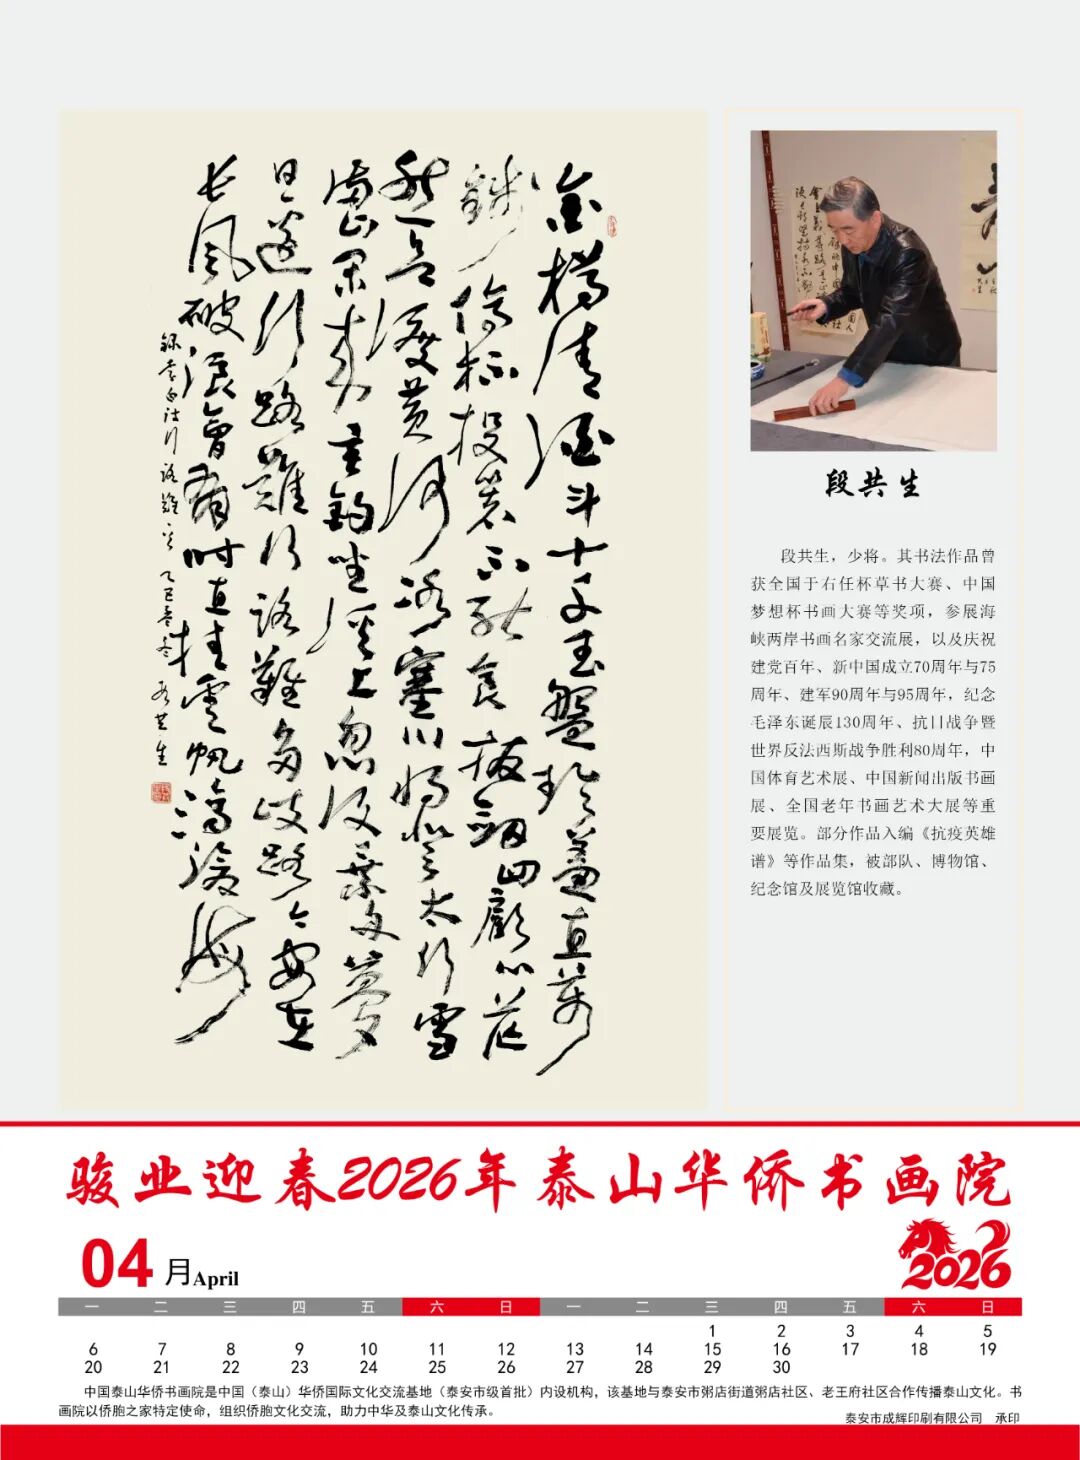 金樽清酒斗十千玉盤珍羞直萬
錢停杯投箸不能食拔劍四顧心茫
然欲渡黄河冰塞川將登太行雪
滿山閑來垂釣坐溪上忽復乘舟夢
日邊行路難行路難多歧路今安在
長風破浪會有時直挂雲帆濟滄海
録李白诗行路難 乙巳 冬 段共生
段共生
段共生，少将。其书法作品曾
获全国于右任杯草书大赛、中国
梦想杯书画大赛等奖项，参展海
峡两岸书画名家交流展，以及庆祝
建党百年、新中国成立70周年与75
周年、建军90周年与95周年，纪念
毛泽东诞辰130周年、抗日战争暨
世界反法西斯战争胜利80周年，中
国体育艺术展、中国新闻出版书画
展、全国老年书画艺术大展等重
要展览。部分作品入编《抗疫英雄
谱》等作品集，被部队、博物馆、
纪念馆及展览馆收藏。
骏业迎春2026年泰山华侨书画院
04月April
2026
一 二 三 四 五 六 日 一 二 三 四 五 六 日
1 2 3 4 5
6 7 8 9 10 11 12 13 14 15 16 17 18 19
20 21 22 23 24 25 26 27 28 29 30
中国泰山华侨书画院是中国（泰山）华侨国际文化交流基地（泰安市级首批）内设机构，该基地与泰安市粥店街道粥店社区、老王府社区合作传播泰山文化。书
画院以侨胞之家特定使命，组织侨胞文化交流，助力中华及泰山文化传承。
泰安市成辉印刷有限公司 承印